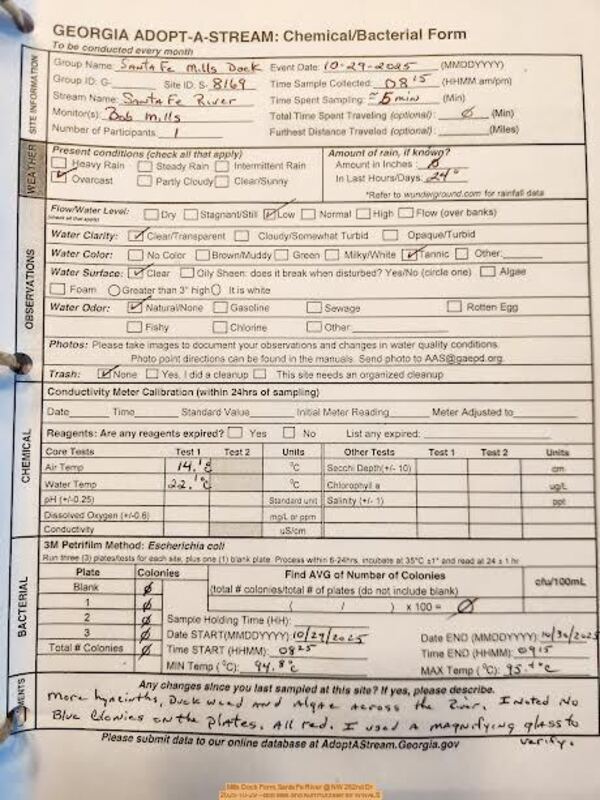 GEORGIA ADOPT-A-STREAM: Chemical/Bacterial Form
To be conducted every month
SITE INFORMATION
Group Name: Santa Fe Mills Dock Event Date: 10-29-2025 (MMDDYYYY)
Group ID: G- Site ID: S- 8169 Time Sample Collected: 0815 (HHMM am/pm)
Stream Name: Santa Fe River Time Spent Sampling: ≈5 min (Min)
Monitor(s): Bob Mills Total Time Spent Traveling (optional): Ø (Min)
Number of Participants 1 Furthest Distance Traveled (optional): (Miles)
WEATHER
Present conditions (check all that apply) Amount of rain, if known?
☐ Heavy Rain ☐ Steady Rain ☐ Intermittent Rain Amount in Inches : Ø
☑ Overcast ☐ Partly Cloudy ☐ Clear/Sunny In Last Hours/Days: 24°
*Refer to wunderground.com for rainfall data
OBSERVATIONS
Flow/Water Level: ☐ Dry ☐ Stagnant/Still ☑ Low ☐ Normal ☐ High ☐ Flow (over banks)
(check all that apply)
Water Clarity: ☑ Clear/Transparent ☐ Cloudy/Somewhat Turbid ☐ Opaque/Turbid
Water Color: ☐ No Color ☐ Brown/Muddy ☐ Green ☐ Milky/White ☑ Tannic ☐ Other:
Water Surface: ☑ Clear ☐ Oily Sheen: does it break when disturbed? Yes/No (circle one) ☐ Algae
☐ Foam ○ Greater than 3" high ○ It is white
Water Odor: ☑ Natural/None ☐ Gasoline ☐ Sewage ☐ Rotten Egg
☐ Fishy ☐ Chlorine ☐ Other:
Photos: Please take images to document your observations and changes in water quality conditions.
Photo point directions can be found in the manuals. Send photo to AAS@gaepd.org.
Trash: ☑ None ☐ Yes, I did a cleanup ☐ This site needs an organized cleanup
CHEMICAL
Conductivity Meter Calibration (within 24hrs of sampling)
Date Time Standard Value Initial Meter Reading Meter Adjusted to
Reagents: Are any reagents expired? ☐ Yes ☐ No List any expired:
Core Tests Test 1 Test 2 Units Other Tests Test 1 Test 2 Units
Air Temp 14.1° °C Secchi Depth(+/- 10) cm
Water Temp 22.1°c °C Chlorophyll a ug/L
pH (+/-0.25) Standard unit Salinity (+/- 1) ppt
Dissolved Oxygen (+/-0.6) mg/L or ppm
Conductivity uS/cm
BACTERIAL
3M Petrifilm Method: Escherichia coli
Run three (3) plates/tests for each site, plus one (1) blank plate. Process within 6-24hrs, incubate at 35°C ±1° and read at 24 ± 1 hr
Plate Colonies Find AVG of Number of Colonies cfu/100mL
Blank Ø (total # colonies/total # of plates (do not include blank)
1 Ø ( / ) x 100 = Ø
2 Ø Sample Holding Time (HH):
3 Ø Date START(MMDDYYYY): 10/29/2025 Date END (MMDDYYYY): 10/30/2025
Total # Colonies Ø Time START (HHMM): 0825 Time END (HHMM): 0915
MIN Temp (°C): 94.8°c MAX Temp (°C): 95.4°c
Any changes since you last sampled at this site? If yes, please describe.
More hyacinths, Duck weed and Algae across the River. I noted No
Blue Colonies on the plates. All red. I used a magnifying glass to
verify.
Please submit data to our online database at AdoptAStream.Georgia.gov